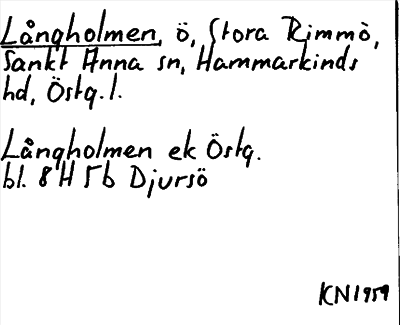 Långholmen, ö, Stora Rimmö,
Sankt Anna sn, Hammarkinds
hd, Östg. l.
Långholmen ek Östg.
bl. 8 H 5b Djursö
KN1959